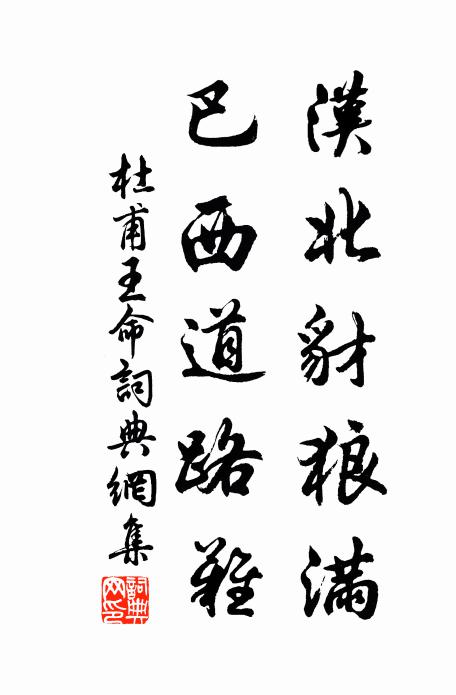 漢北豺狼滿
巴西道路難
杜甫王命詞典網集
詞典网印